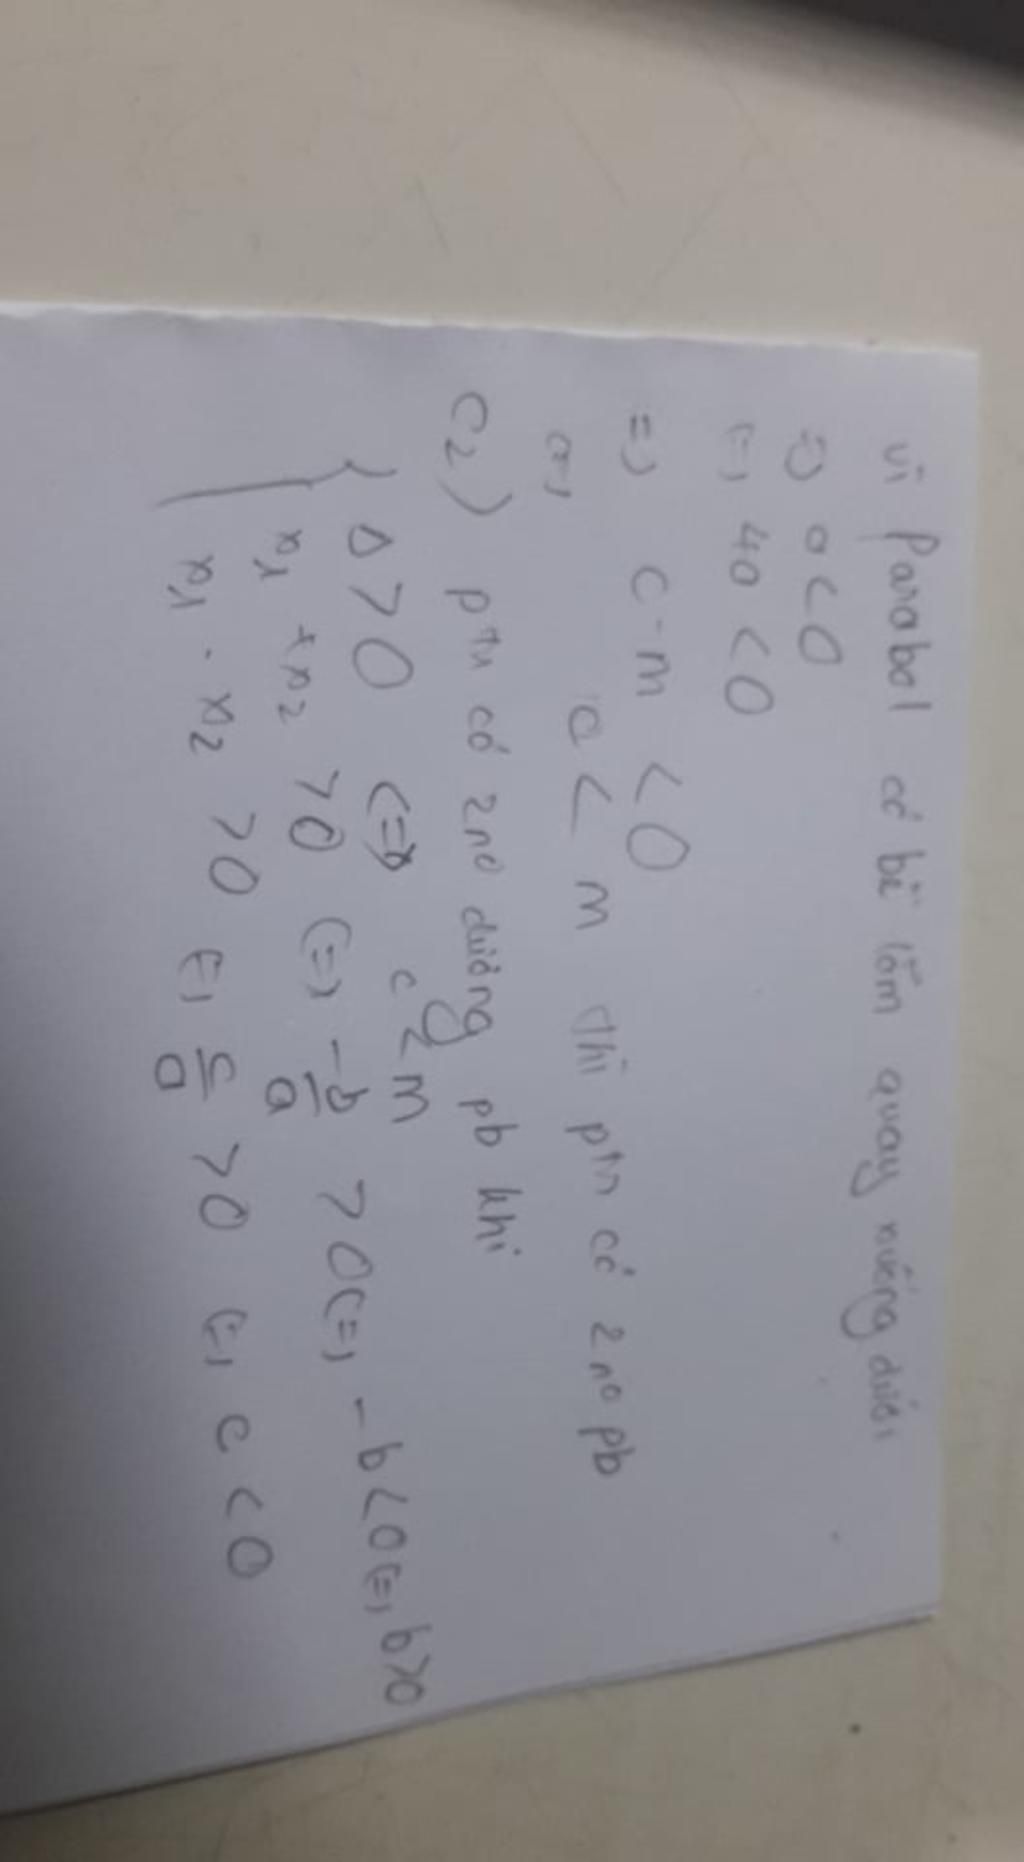 vì Parabol có bề lõm quay xuống dưới
=) a < 0
(=) 4a < 0
=) c - m < 0
(=) c < m thì ptr có 2 no pb
C2) ptr có 2 no dương pb khi
{ Δ > 0 <=> c < m
x1 + x2 > 0 (=) -b/a > 0 (=) -b < 0 (=) b > 0
x1 . x2 > 0 (=) c/a > 0 (=) c < 0